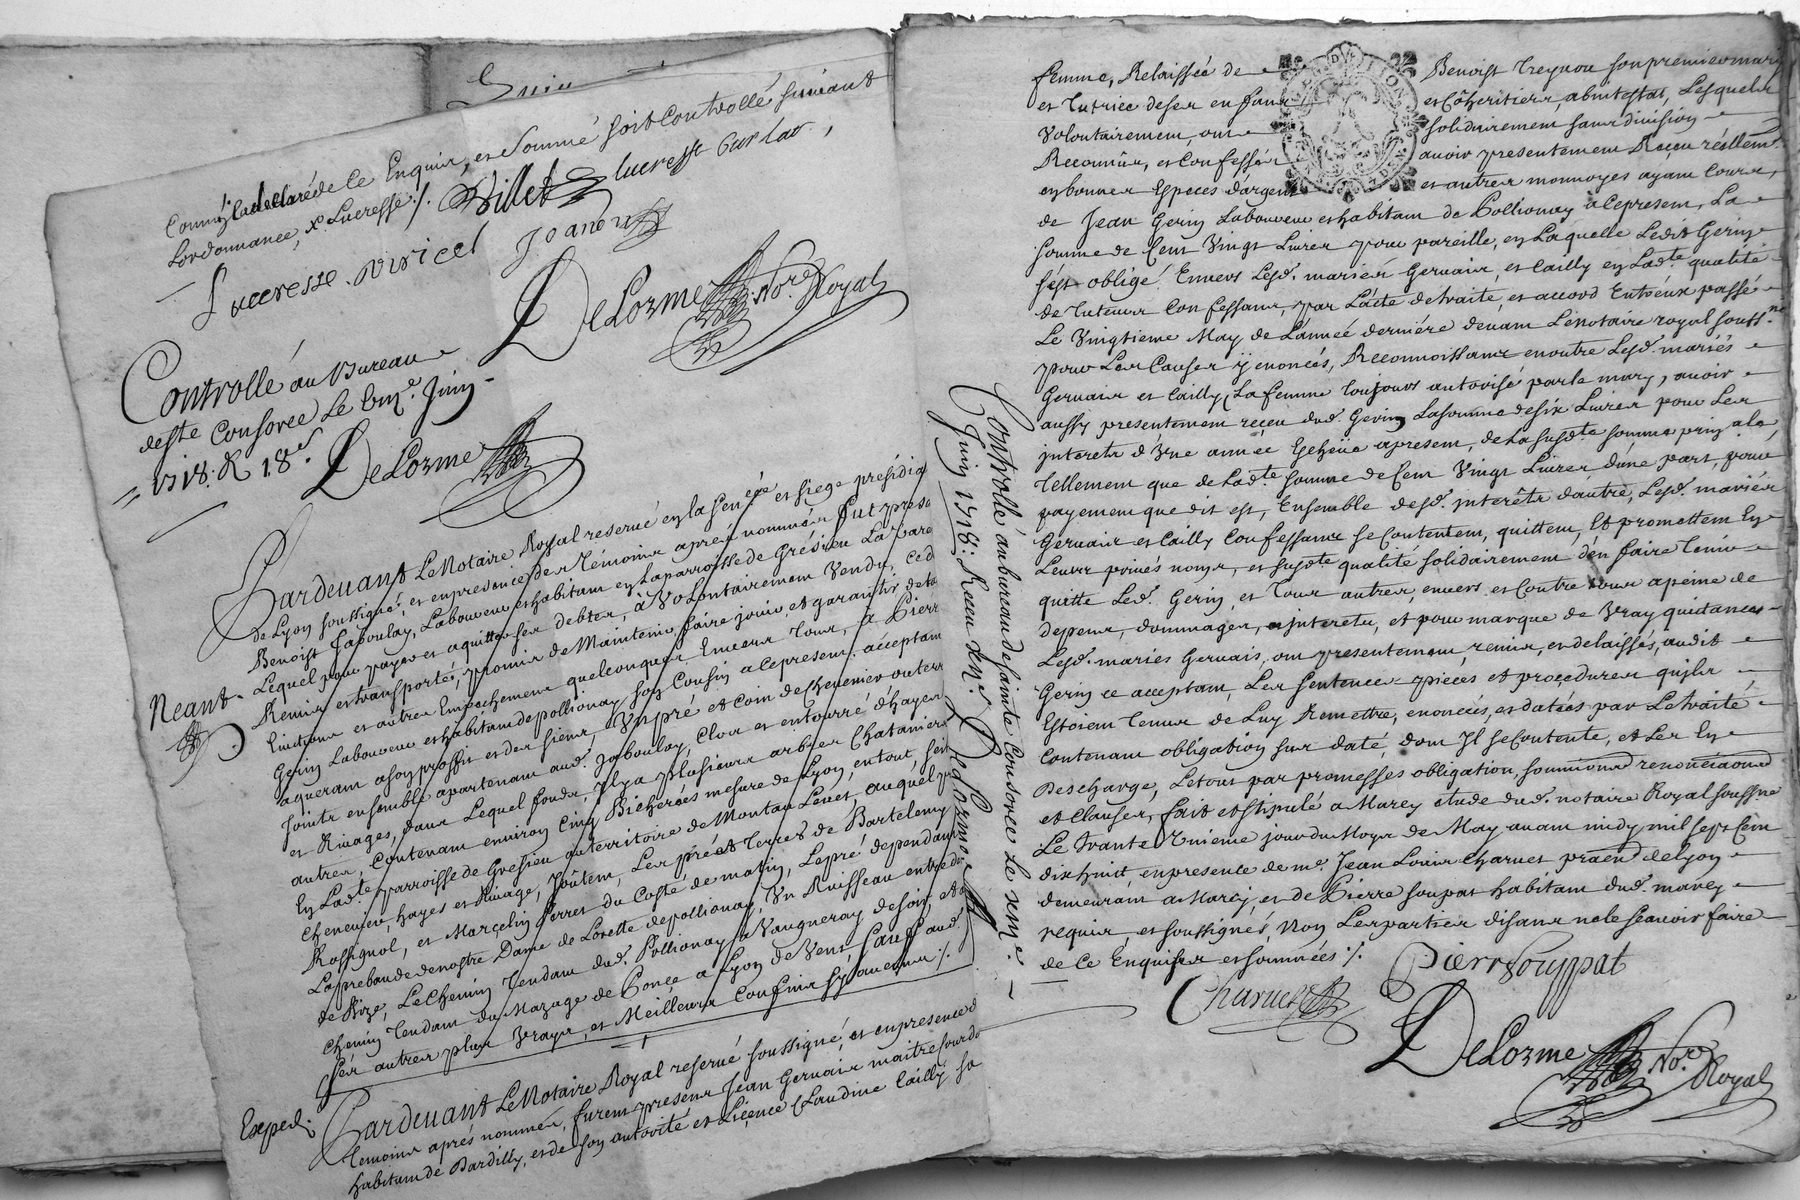 Suiv
Connû La declaré de Ce Enquis, et Sommé soit Controllé suivant
Lordonnance, x Lucresse ./. Villet lucresse
Lucresse. viricel Joanon
DeLorme No.re Royal
Controllé au Bureau
deste Consorce Le Juin
1718. R 18.s DeLorme
Pardevant Le Notaire Royal reservé en la Sen.cée et siege presidia
de Lyon soussigné, et en presence des Témoins aprés nommés fut presa
Benoist Jaboulay, Laboureur et habitant en La parroisse de Grésieu La Vare
Lequel pour payer et aquitter ses debtes, à Volontairement Vendu, ced
Neant Remis et transporté, promis de Maintenir faire jouir et garantir de to
Evictions et autres Empechemens quelconques Envers Tous, à Pierr
Gerin Laboureur et habitant de pollionay son Cousin a Cepresent acceptan
aquerant a son proffit et des siens, Un pré et Coin de Chenevier outerr
Joints ensemble apartenant aud. Jaboulay, Clos et entourré d'hayes
et Rivages, dans Lequel fonds, Il y a plusieurs arbres Chataniers
autres, Contenant environ Cinq Bicherées mesure de Lyon, en tout, sci
En Lad.te parroisse de Gresieu au territoire de Montau Levet, auquel p
Chenevier, hayes et Rivage, Joûtent, Les prés et Terres de Bartelemy
Rossignol, et Marcelin Ferret du Costé de matin, Le pré dependant
La prebande de nostre Dame de Lorette de pollionay, Un Ruisseau entre d
de Bize, Le Chemin Tendant dud. Pollionay a Vaugneray de soir, et
Chemin Tendant du Mazage de Ponce a Lyon de Vent, Sauf aud.
ses autres plus Vrays, et Meilleurs Confins sy aucuns ./.
Exped. Pardevant Le Notaire Royal reservé soussigné, et en presence d
Temoins aprés nommés, furent presens Jean Gervais maitre
habitant de Dardilly, et de son autorité et Licence Claudine Cailly sa
Controllé au bureau de sainte Consorce Le
Juin 1718: Receu DeLorme
femme, Relaissée de Benoist Treynou son premier mary
et Tutrice de ses enfans et Côheritiers abintestat, Lesquels
Volontairement, ont solidairement sans division
Reconnûs, et Confessés avoir presentement Receu réellemt.
en bonnes Especes d'argent et autres monnoyes ayant Cours,
de Jean Gerin Laboureur et habitant de Pollionay a Cepresent, La
somme de Cent Vingt Livres pour pareille, en Laquelle Ledit Gerin
s'est obligé Envers Lesd. mariés Gervais, et Cailly en Lad.te qualité
de Tuteurs Confessans, par L'acte de traité et accord Entreux passé
Le Vingtieme May de L'anneé derniére devant Lenotaire royal souss.né
pour Les Causes ÿ enoncés, Reconnoissans enoutre Lesd. mariés
Gervais et Cailly, La femme Toujours autorisé par le mary, avoir
aussy presentement receu dud. Gerin La somme de six Livres pour Les
jnterets d'Une anneé Echeüe apresent, de La susd.te somme prin.ale,
Tellement que de Lad.te somme de Cent Vingt Livres d'une part, pour
payement que dit est, Ensemble desd. jnterêts d'autre, Lesd. mariés
Gervais et Cailly Confessans se Contentent, quittent, Et promettent En
Leurs privés noms, et susd.te qualité solidairement d'en faire Tenir
quitte Led. Gerin, et Tous autres, envers et Contre tous apeine de
depens, dommages, et jnterets, et pour marque de Vray quittances
Lesd. mariés Gervais, ont presentement, remis, et delaissés, audit
Gerin ce acceptant, Les sentence pieces et procedures qu'ils
Estoient Tenus de Luy Remettre, enoncéés, et datéés par Le traité
Contenant obligation sus daté, dont Il se Contente, et Les En
Descharge, Letout par promesses obligation, soumissions renonciations
et Clauses, fait et stipulé a Marcy étude dud. notaire Royal souss.né
Le Trante Unieme jour du Moys de May avant midy mil sept Cent
dixhuit, en presence de m.e Jean Louis Charvet praen de Lyon
demeurant a Marcy, et de Pierre soupat habitant dud. marcy
requis et soussignés, Non Les parties disans ne le scavoir faire
de ce Enquises et sommées ./.
Charvet Pierr Souppat
DeLorme No.re Royal